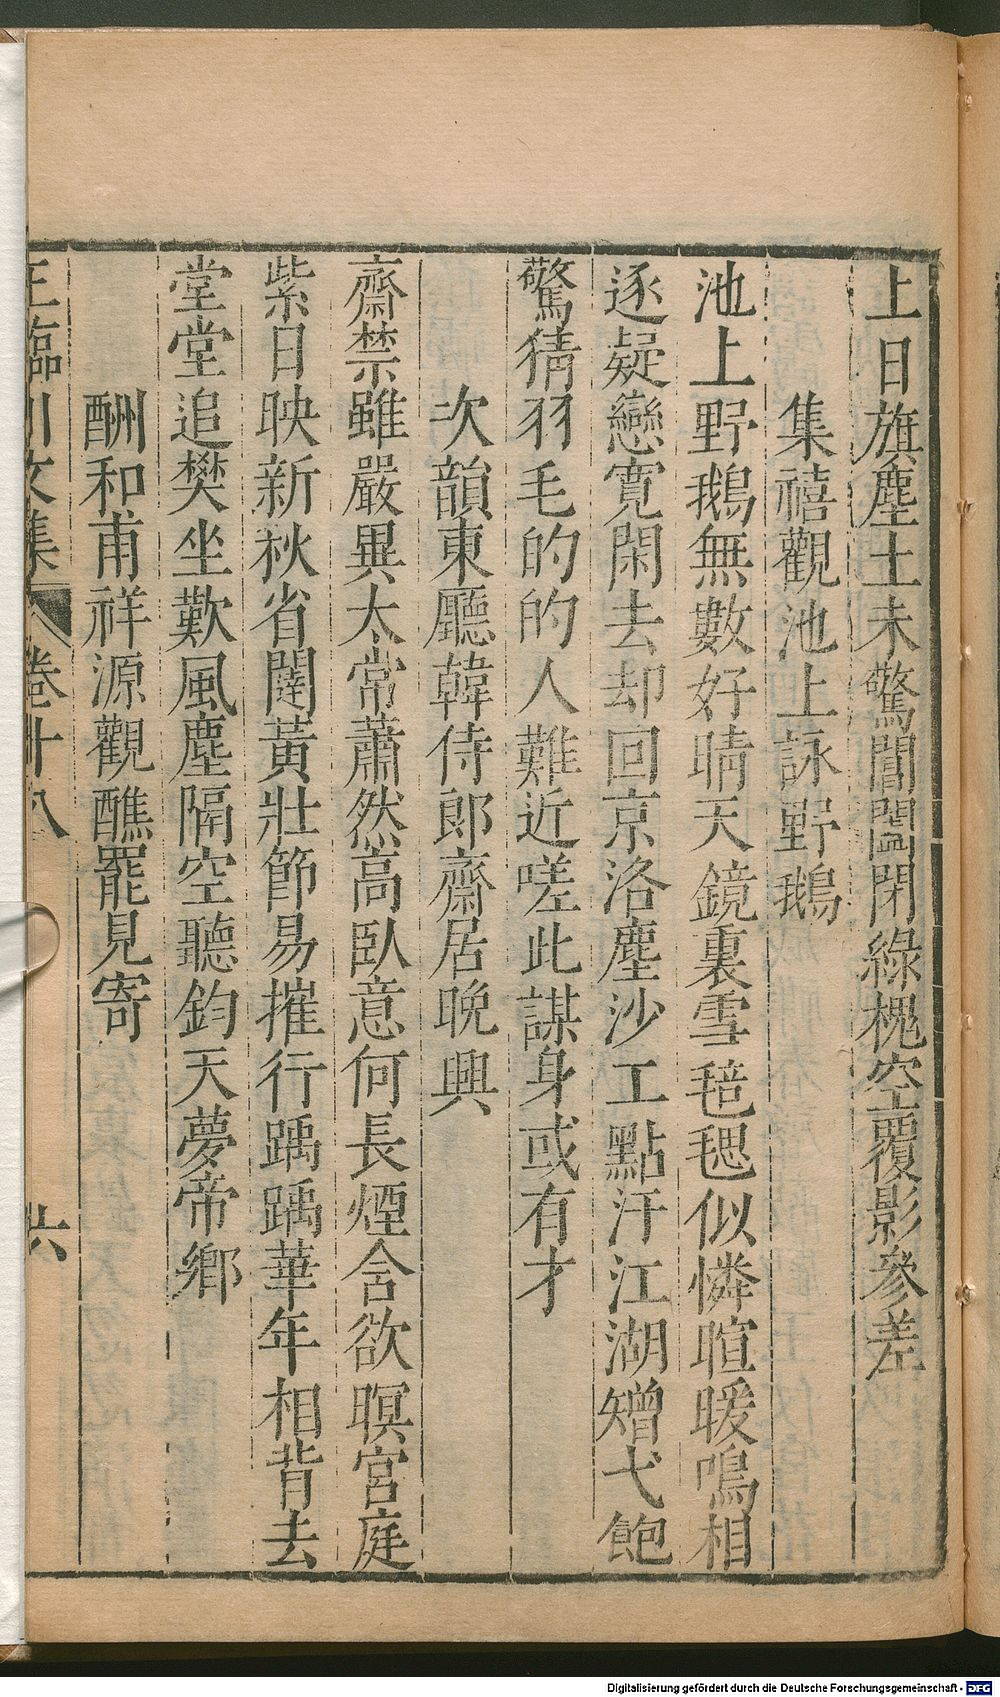 上日旗塵土未驚閶闔閉綠槐空覆影參差
集禧觀池上詠野鵝
池上野鵝無數好晴天鏡裏雪毰毸似憐暄暖鳴相
逐疑戀寬閑去却回京洛塵沙工點汙江湖矰弋飽
驚猜羽毛的的人難近嗟此謀身或有才
次韻東廳韓侍郎齋居晚興
齋禁雖嚴異太常蕭然高臥意何長煙含欲暝宮庭
紫日映新秋省闥黃壯節易摧行踽踽華年相背去
堂堂追樊坐歎風塵隔空聽鈞天夢帝鄉
酬和甫祥源觀醮罷見寄
王臨川文集 卷十八 六
Digitalisierung gefördert durch die Deutsche Forschungsgemeinschaft - DFG